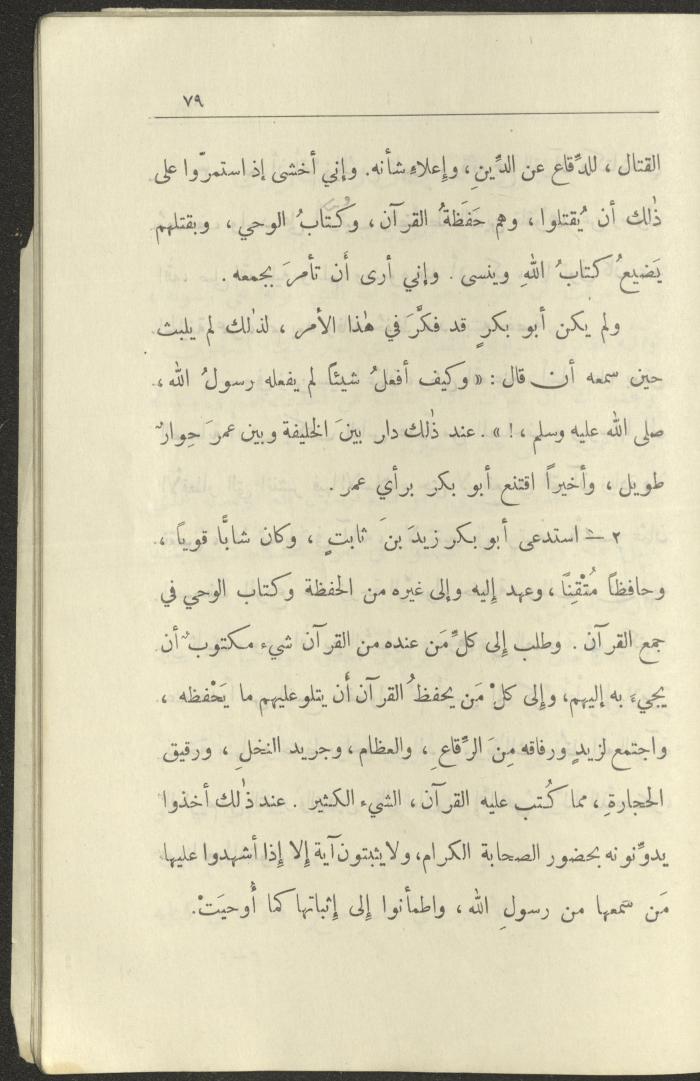 ٧٩
القتال ، للدِّفاع عن الدِّينِ ، وإِعلاءِ شأنه. وإني أخشى إذ استمرّوا على
ذٰلك أن يُقتلوا ، وهم حَفَظةُ القرآن ، وكتابُ الوحي ، وبقتلهم
يَضيعُ كتابُ اللهِ وينسى . وإني أرى أَن تأمرَ بجمعه .
ولم يكن أبو بكرٍ قد فكَّرَ في هٰذا الأمر ، لذٰلك لم يلبث
حين سمعه أن قال : « وكيف أفعلُ شيئًا لم يفعله رسولُ الله ،
صلى الله عليه وسلم ، ! » . عند ذٰلك دار بينَ الخليفة وبين عمرَ حِوارٌ
طويل ، وأخيراً اقتنع أبو بكر برأي عمر .
٢ – استدعى أبو بكر زيدَ بنَ ثابتٍ ، وكان شابًّا قوياً ،
وحافظاً مُتْقِنًا ، وعهد إِليه وإلى غيره من الحفظة وكتاب الوحي في
جمع القرآن . وطلب إِلى كلِّ مَن عنده من القرآن شيء مكتوبٌ أن
يجيءَ به إليهم، وإِلى كلِّ مَن يحفظُ القرآن أَن يتلو عليهم ما يَحْفظه ،
واجتمع لزيدٍ ورفاقه مِنَ الرِّقاعِ ، والعظام ، وجريد النخلِ ، ورقيق
الحجارةِ ، مما كُتب عليه القرآن ، الشيء الكثير . عند ذٰلك أخذوا
يدوِّنونه بحضور الصحابة الكرام، ولا يثبتون آية إِلا إِذا أشهدوا عليها
مَن سمعها من رسولِ الله ، واطمأنوا إِلى إِثباتها كما أُوحيَتْ.